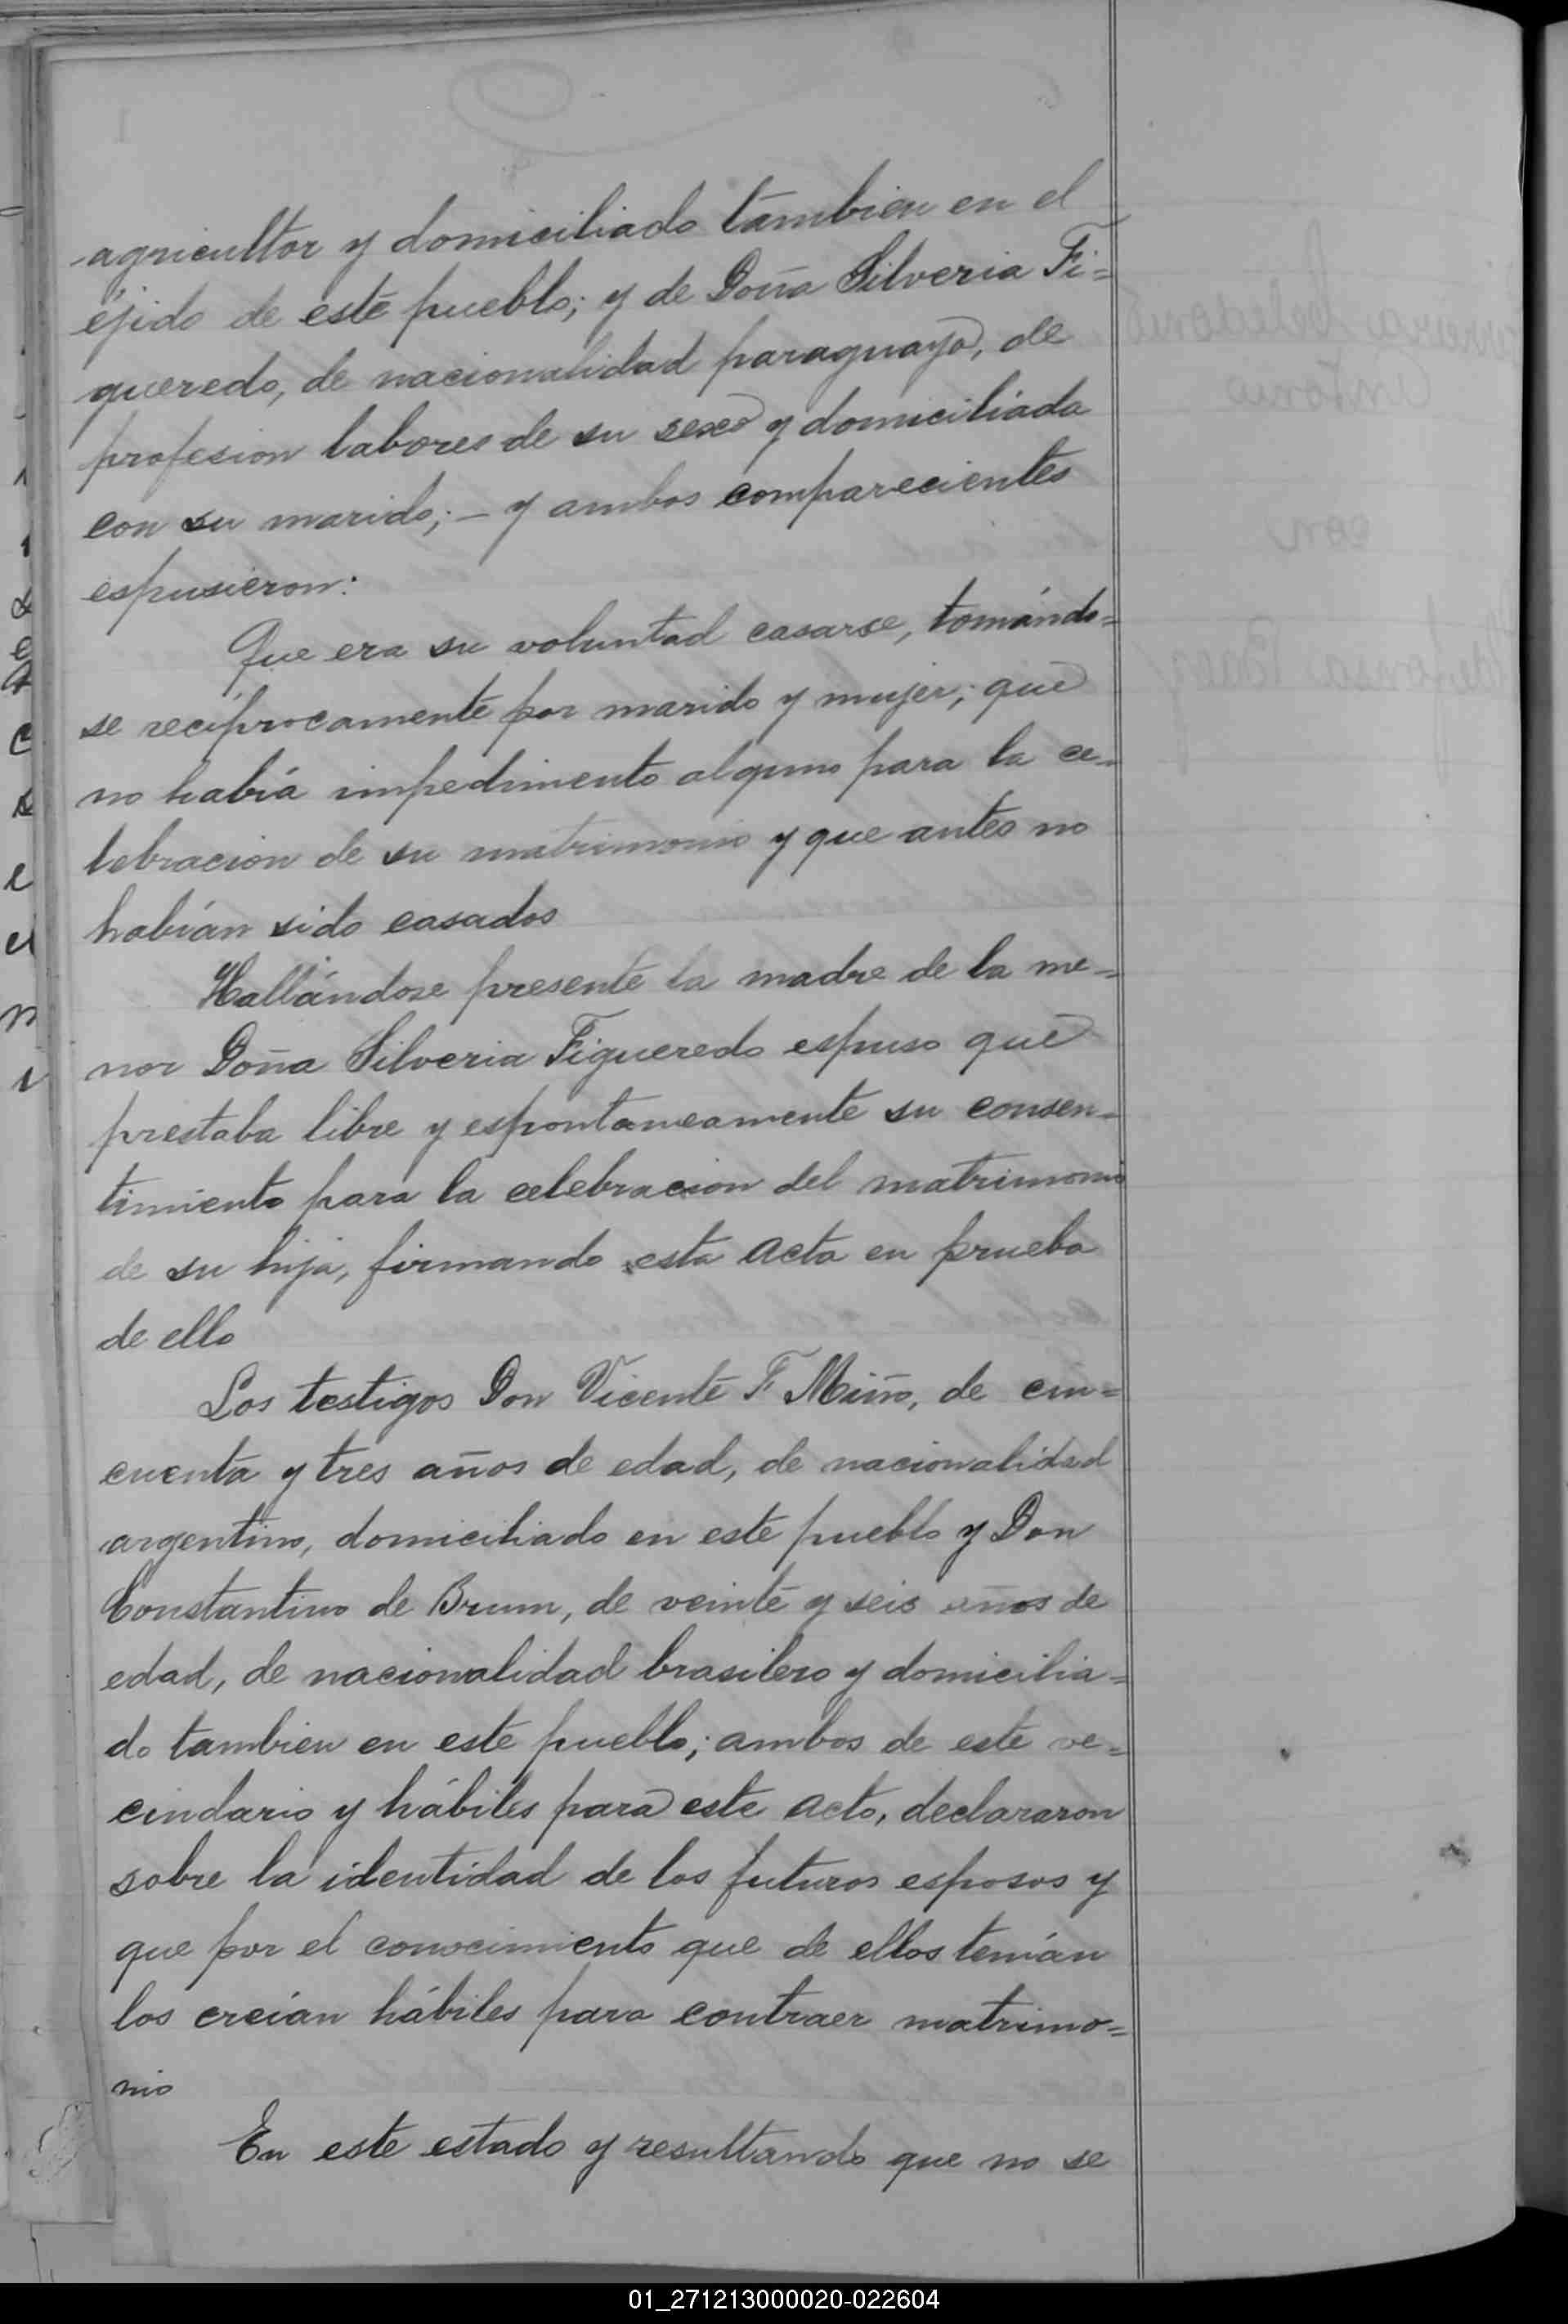 agricultor y domiciliado tambien en el
éjido de este pueblo; y de Doña Silveria Fi=
gueredo, de nacionalidad paraguaya, de
profesion labores de su sexo y domiciliada
con su marido; – y ambos comparecientes
espusieron:
Que era su voluntad casarse, tomándo=
se recíprocamente por marido y mujer; que
no había impedimento alguno para la ce-
lebracion de su matrimonio y que antes no
habían sido casados
Hallándose presente la madre de la me-
nor Doña Silveria Figueredo espuso que
prestaba libre y espontaneamente su consen-
timiento para la celebracion del matrimonio
de su hija, firmando esta acta en prueba
de ello
Los testigos Don Vicente F. Miño, de cin=
cuenta y tres años de edad, de nacionalidad
argentino, domiciliado en este pueblo y Don
Constantino de Brum, de veinte y seis años de
edad, de nacionalidad brasilero y domicilia=
do tambien en este pueblo; ambos de este ve=
cindario y hábiles para este acto, declararon
sobre la identidad de los futuros esposos y
que por el conocimiento que de ellos tenían
los creían hábiles para contraer matrimo=
nio
En este estado y resultando que no se
01_271213000020-022604